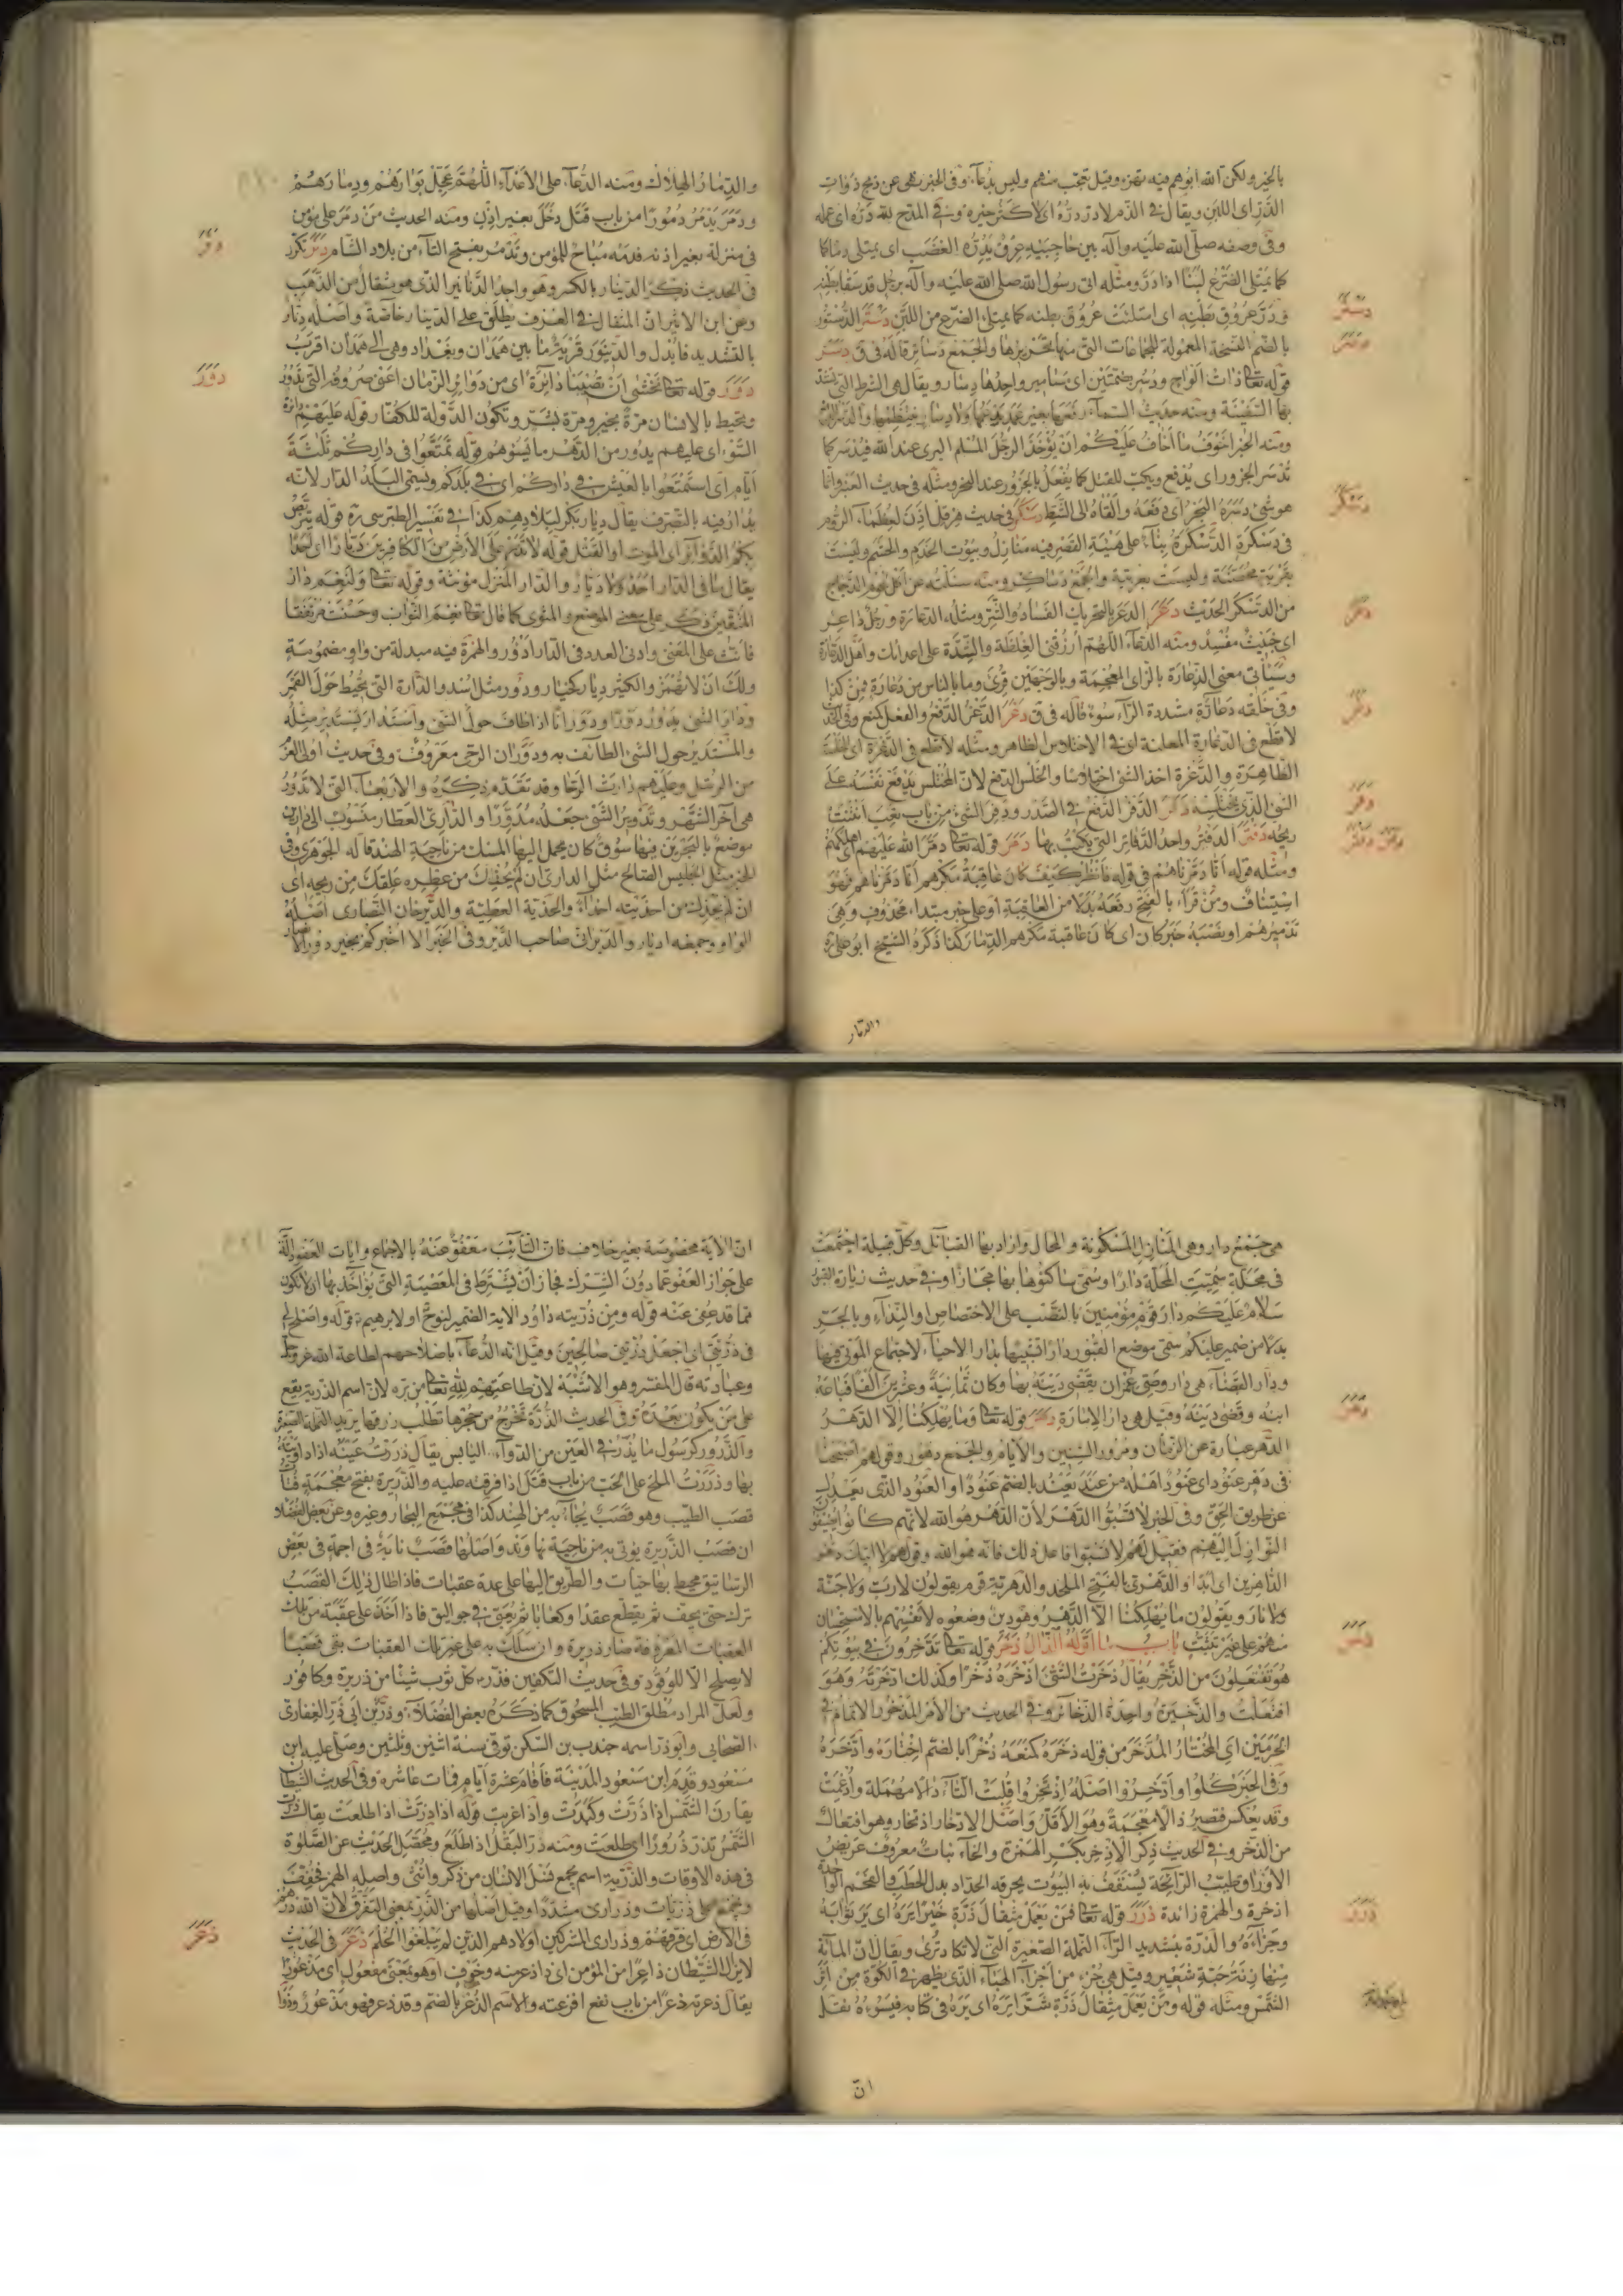 بالخير ولكن الله ابوهم فيه تهزء وقيل تعجب منهم وليس بدعاء وفى الخبر نهى عن ذبح ذوات
الدّرّ اى اللبن ويقال فى الذم لا درّ درّه اى لا كثر خيره وفى المدح لله درّه اى عمله
وفى وصفه صلى الله عليه وآله بين حاجبيه عرق يدرّه الغضب اى يمتلى دما كما
كما يمتلى الضرع لبنا اذا درّ ومثله اتى رسول الله صلى الله عليه وآله برجل قد سقا بطنه
ودرّ عروق بطنه اى امتلئت عروق بطنه كما يمتلى الضرع من اللبن دستر الدّستور
بالضم النسخة المعمولة للجماعات التى منها تحريرها والجمع دساتير قاله فى ق دسر
قوله تعا ذات الواح ودسر بضمتين اى مسامير واحدها دسار ويقال هى الشرط التى تشد
بها السفينة ومنه حديث السماء رفعها بغير عمد يدعمها ولا دسار ينتظمها والدسر الدفع
ومنه الخبر اخوف ما اخاف عليكم ان يؤخذ الرجل المسلم البرى عند الله فيدسر كما
تدسر الجزور اى يدفع ويكب للقتل كما يفعل بالجزور عند النحر ومثله فى حديث العنبر وانما
هو شئ دسره البحر اى دفعه والقاه الى الشط دسكر فى حديث هرقل اذن لعظماء الروم
فى دسكرة الدّسكرة بناء على هيئة القصر فيه منازل وبيوت الخدم والحشم وليست
بقرية محضة وليست بعربية والجمع دساكر ومنه سئلته عن اكل لحوم الدجاج
من الدسكر الحديث دعر الدعر بالتحريك الفساد والشر ومثله الدعارة ورجل داعر
اى خبيث مفسد ومنه الدعاء اللهم ارزقنى الغلظة والشدة على اعدائك واهل الدعارة
وسياتى معنى الذعارة بالزاى المعجمة وبالوجهين قرئ وما بالناس من دعارة فمن كذا
وفى خلقه دعارّة مشددة الراء سوء قاله فى ق دغر الدّغر الدفع والفعل كمنع وفى الخبر
لا قطع فى الدغارة المعلنة اى فى الاختلاس الظاهر ومثله لا قطع فى الدغرة اى الخلسة
الظاهرة والدّغرة اخذ الشئ اختلاسا والخلس الدفع لان المختلس يدفع نفسه على
الشئ الذى يختلسه دفر الدفر الدفع فى الصدر ودفر الشئ من باب تعب انتنت
ريحه دفتر الدفتر واحد الدفاتر التى يكتب بها دمر قوله تعا دمّر الله عليهم اى اهلكهم
ومثله قوله انّا دمّرناهم فى قوله فانظر كيف كان عاقبة مكرهم انّا دمّرناهم فهو
استيناف ومن قراء بالفتح رفعه بدلا من العاقبة او على خبر مبتداء محذوف وهى
تدميرهم او نصبه خبر كان اى كان عاقبة مكرهم الدمار كذا ذكره الشيخ ابو على ره
والدمار
والدّمار الهلاك ومنه الدعاء على الاعداء اللهم عجّل بوارهم ودمارهم
ودمر يدمر دمورا من باب قتل دخل بغير اذن ومنه الحديث من دمر على مؤمن
فى منزله بغير اذنه فدمه مباح للمؤمن وتدمر بفتح التاء من بلاد الشام دنر تكرر
فى الحديث ذكر الدينار بالكسر وهو واحد الدنانير الذى هو مثقال من الذهب
وعن ابن الاثير ان المثقال فى العرف يطلق على الدينار خاصة واصله دنّار
بالتشديد فابدل والدينور قرية ما بين همدان وبغداد وهى الى همدان اقرب
دور قوله تعا نخشى ان تصيبنا دائرة اى من دوائر الزمان اعنى صروفه التى تدور
وتحيط بالانسان مرة بخير ومرة بشر وتكون الدولة للكفار قوله عليهم دائرة
السّوء اى عليهم يدور من الدهر ما يسؤهم قوله تمتعوا فى داركم ثلثة
ايام اى استمتعوا بالعيش فى داركم اى فى بلدكم ويسمى البلد الدار لانه
يدار فيه بالتصرف يقال ديار بكر لبلادهم كذا فى تفسير الطبرسى ره قوله يتربص
بكم الدوائر اى الموت او القتل قوله لا تذر على الارض من الكافرين ديارا اى احدا
يقال ما فى الدار احد ولا ديار والدار المنزل مؤنثة وقوله تعا ولنعم دار
المتقين ذكر على معنى الموضع والمثوى كما قال تعا نعم الثواب وحسنت مرتفقا
فانث على المعنى وادنى العدد فى الدار ادؤر والهمزة فيه مبدلة من واو مضمومة
ولك ان لا تهمز والكثير ديار كخيار ودور مثل اسد والدارة التى تحيط حول القمر
ودار الشئ يدور دورا ودورانا اذا طاف حول الشئ واستدار يستدير مثله
والمستدير حول الشئ الطائف به ودوران الرحى معروف وفى حديث اولى العزم
من الرسل وعليهم دارت الرحا وقد تقدم ذكره والاربعاء التى لا تدور
هى آخر الشهر وتدوير الشئ جعله مدورا والدارى العطار منسوب الى دارين
موضع بالبحرين فيها سوق كان يحمل اليها المسك من ناحية الهند قاله الجوهرى وفى
الخبر مثل الجليس الصالح مثل الدارى ان لم يحذك من عطره علقك من ريحه اى
ان لم يحذك من احذيته احذاء والحذية العطية والدير خان النصارى اصله
الواو وجمعه اديار والديرانى صاحب الدير وفى الخبر الا اخبركم بخير دور الانصار
هى جمع دار وهى المنازل المسكونة والمحال واراد بها القبائل وكل قبيلة اجتمعت
فى محلة سميت المحلة دارا وسمى ساكنوها بها مجازا وفى حديث زيارة القبور
سلام عليكم دار قوم مؤمنين بالنصب على الاختصاص او النداء وبالجر
بدلا من ضمير عليكم سمى موضع القبور دارا تشبيها بدار الاحياء لاجتماع الموتى فيها
ودار القضاء هى دار وصى عمر ان يقضى دينه بها وكان ثمانية وعشرين الفا فباعه
ابنه وقضى دينه وقيل هى دار الامارة دهر قوله تعا وما يهلكنا الّا الدهر
الدهر عبارة عن الزمان ومرور السنين والايام والجمع دهور وقولهم اصبحنا
فى دهر عنود اى عنود اهله من عند يعند بالضم عنودا والعنود الذى يعدل
عن طريق الحق وفى الخبر لا تسبوا الدهر لان الدهر هو الله لانهم كانوا يضيفون
النوازل اليه فقيل لهم لا تسبوا فاعل ذلك فانه هو الله وقولهم لا آتيك دهر
الداهرين اى ابدا والدهرى بالفتح الملحد والدهرية قوم يقولون لا رب ولا جنة
ولا نار ويقولون ما يهلكنا الّا الدهر وهو دين وضعوه لانفسهم بالاستحسان
منهم على غير تثبت باب ما اوله الذال ذخر قوله تعا تدّخرون فى بيوتكم
هو تفتعلون من الذخر يقال ذخرت الشئ اذخره ذخرا وكذلك ادّخرته وهو
افتعلت والذخيرة واحدة الذخائر وفى الحديث من الامر المذخور الاتمام فى
الحرمين اى المختار المدّخر من قوله ذخره كمنعه ذخرا بالضم اختاره وادّخره
وفى الخبر كلوا وادّخروا اصله اذتخروا قلبت التاء دالا مهملة وادغمت
وقد يعكس فتصير ذالا معجمة وهو الاقل واصل الادخار اذتخار وهو افتعال
من الذخر وفى الحديث ذكر الاذخر بكسر الهمزة والخاء نبات معروف عريض
الاوراق طيب الرائحة يسقف به البيوت يحرقه الحداد بدل الحطب والفحم الواحدة
اذخرة والهمزة زائدة ذرر قوله تعا فمن يعمل مثقال ذرة خيرا يره اى ير ثوابه
وجزاءه والذرة بتشديد الراء النملة الصغيرة التى لا تكاد ترى ويقال ان المائة
منها زنة حبة شعير وقيل هى جزء من اجزاء الهباء الذى يظهر فى الكوة من اثر
الشمس ومثله قوله ومن يعمل مثقال ذرة شرا يره اى يره فى كتابه فيسوءه نقل
انّ
انّ الآية مخصوصة بغير خلاف فان التائب معفو عنه بالاجماع وايات العفو دالة
على جواز العفو عما دون الشرك فجاز ان يشترط فى المعصية التى يؤاخذ بها ان لا تكون
مما قد عفى عنه قوله ومن ذريته داود الاية الضمير لنوح او لابرهيم ع قوله واصلح لى
فى ذريتى اى اجعل ذريتى صالحين وقيل انه الدعاء باصلاحهم لطاعة الله عز وجل
وعبادته قال المفسر وهو الاشبه لان طاعتهم لله تعا من بره لان اسم الذرية يقع
على من يكون بعده وفى الحديث الذرة تخرج من حجرها تطلب رزقها يريد النملة الصغيرة
والذّرور كرسول ما يذر فى العين من الدواء اليابس يقال ذررت عينه اذا داويته
بها وذررت الملح على الحب من باب قتل اذا فرقته عليه والذريرة بفتح معجمة فتات
قصب الطيب وهو قصب يجاء به من الهند كذا فى مجمع البحار وغيره وعن بعض الفضلاء
ان قصب الذريرة يؤتى به من ناحية نهاوند واصلها قصب نابت فى اجمة فى بعض
الرساتيق محيط بها حيات والطريق اليها على عدة عقبات فاذا طال ذلك القصب
ترك حتى يجف ثم يقطع عقدا وكعابا ثم يعبى فى جواليق فاذا اخذ على عقبة من تلك
العقبات المعروفة صار ذريرة وان سلك به على غير تلك العقبات بقى قصبا
لا يصلح الّا للوقود وفى حديث التكفين فذر على كل ثوب شيئا من ذريرة وكافور
ولعل المراد مطلق الطيب المسحوق كما ذكره بعض الفضلاء وذر بن ابى ذر الغفارى
الصحابى وابو ذر اسمه جندب بن السكن توفى سنة اثنين وثلثين وصلى عليه ابن
مسعود وقدم ابن مسعود المدينة فاقام عشرة ايام فمات عاشره وفى الحديث الشيطان
يقارن الشمس اذا ذرت وكبدت واذا غربت قوله اذا ذرت اذا طلعت يقال ذرت
الشمس تذر ذرورا اى طلعت ومنه ذر البقل اذا طلع ومحصل الحديث عن الصلوة
فى هذه الاوقات والذرية اسم يجمع نسل الانسان من ذكر وانثى واصله الهمز فخفف
ويجمع على ذريات وذرارى مشددا وقيل اصلها من الذر بمعنى التفرق لان الله ذرهم
فى الارض اى فرقهم وذرارى المشركين اولادهم الذين لم يبلغوا الحلم ذعر فى الحديث
لا يزال الشيطان ذاعرا من المؤمن اى ذا ذعر منه وخوف او هو بمعنى مفعول اى مذعورا
يقال ذعرته ذعرا من باب نفع افزعته والاسم الذعر بالضم وقد ذعر فهو مذعور
دستر
دسر
دسكر
دعر
دغر
دفر
دفتر دمر
دنر
دور
دهر
ذخر
ذرر
ذعر